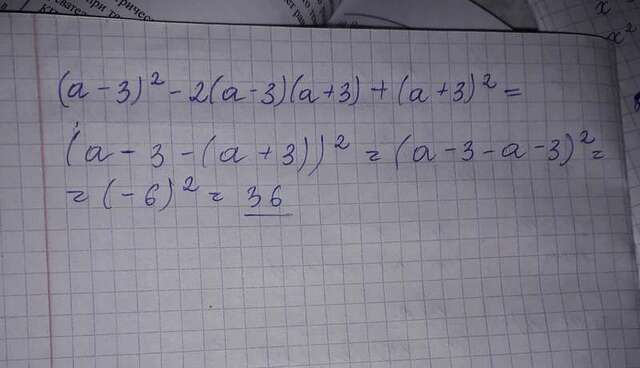 (a-3)² - 2(a-3)(a+3) + (a+3)² =
(a - 3 - (a + 3))² = (a - 3 - a - 3)² =
= (-6)² = 36
x
x²